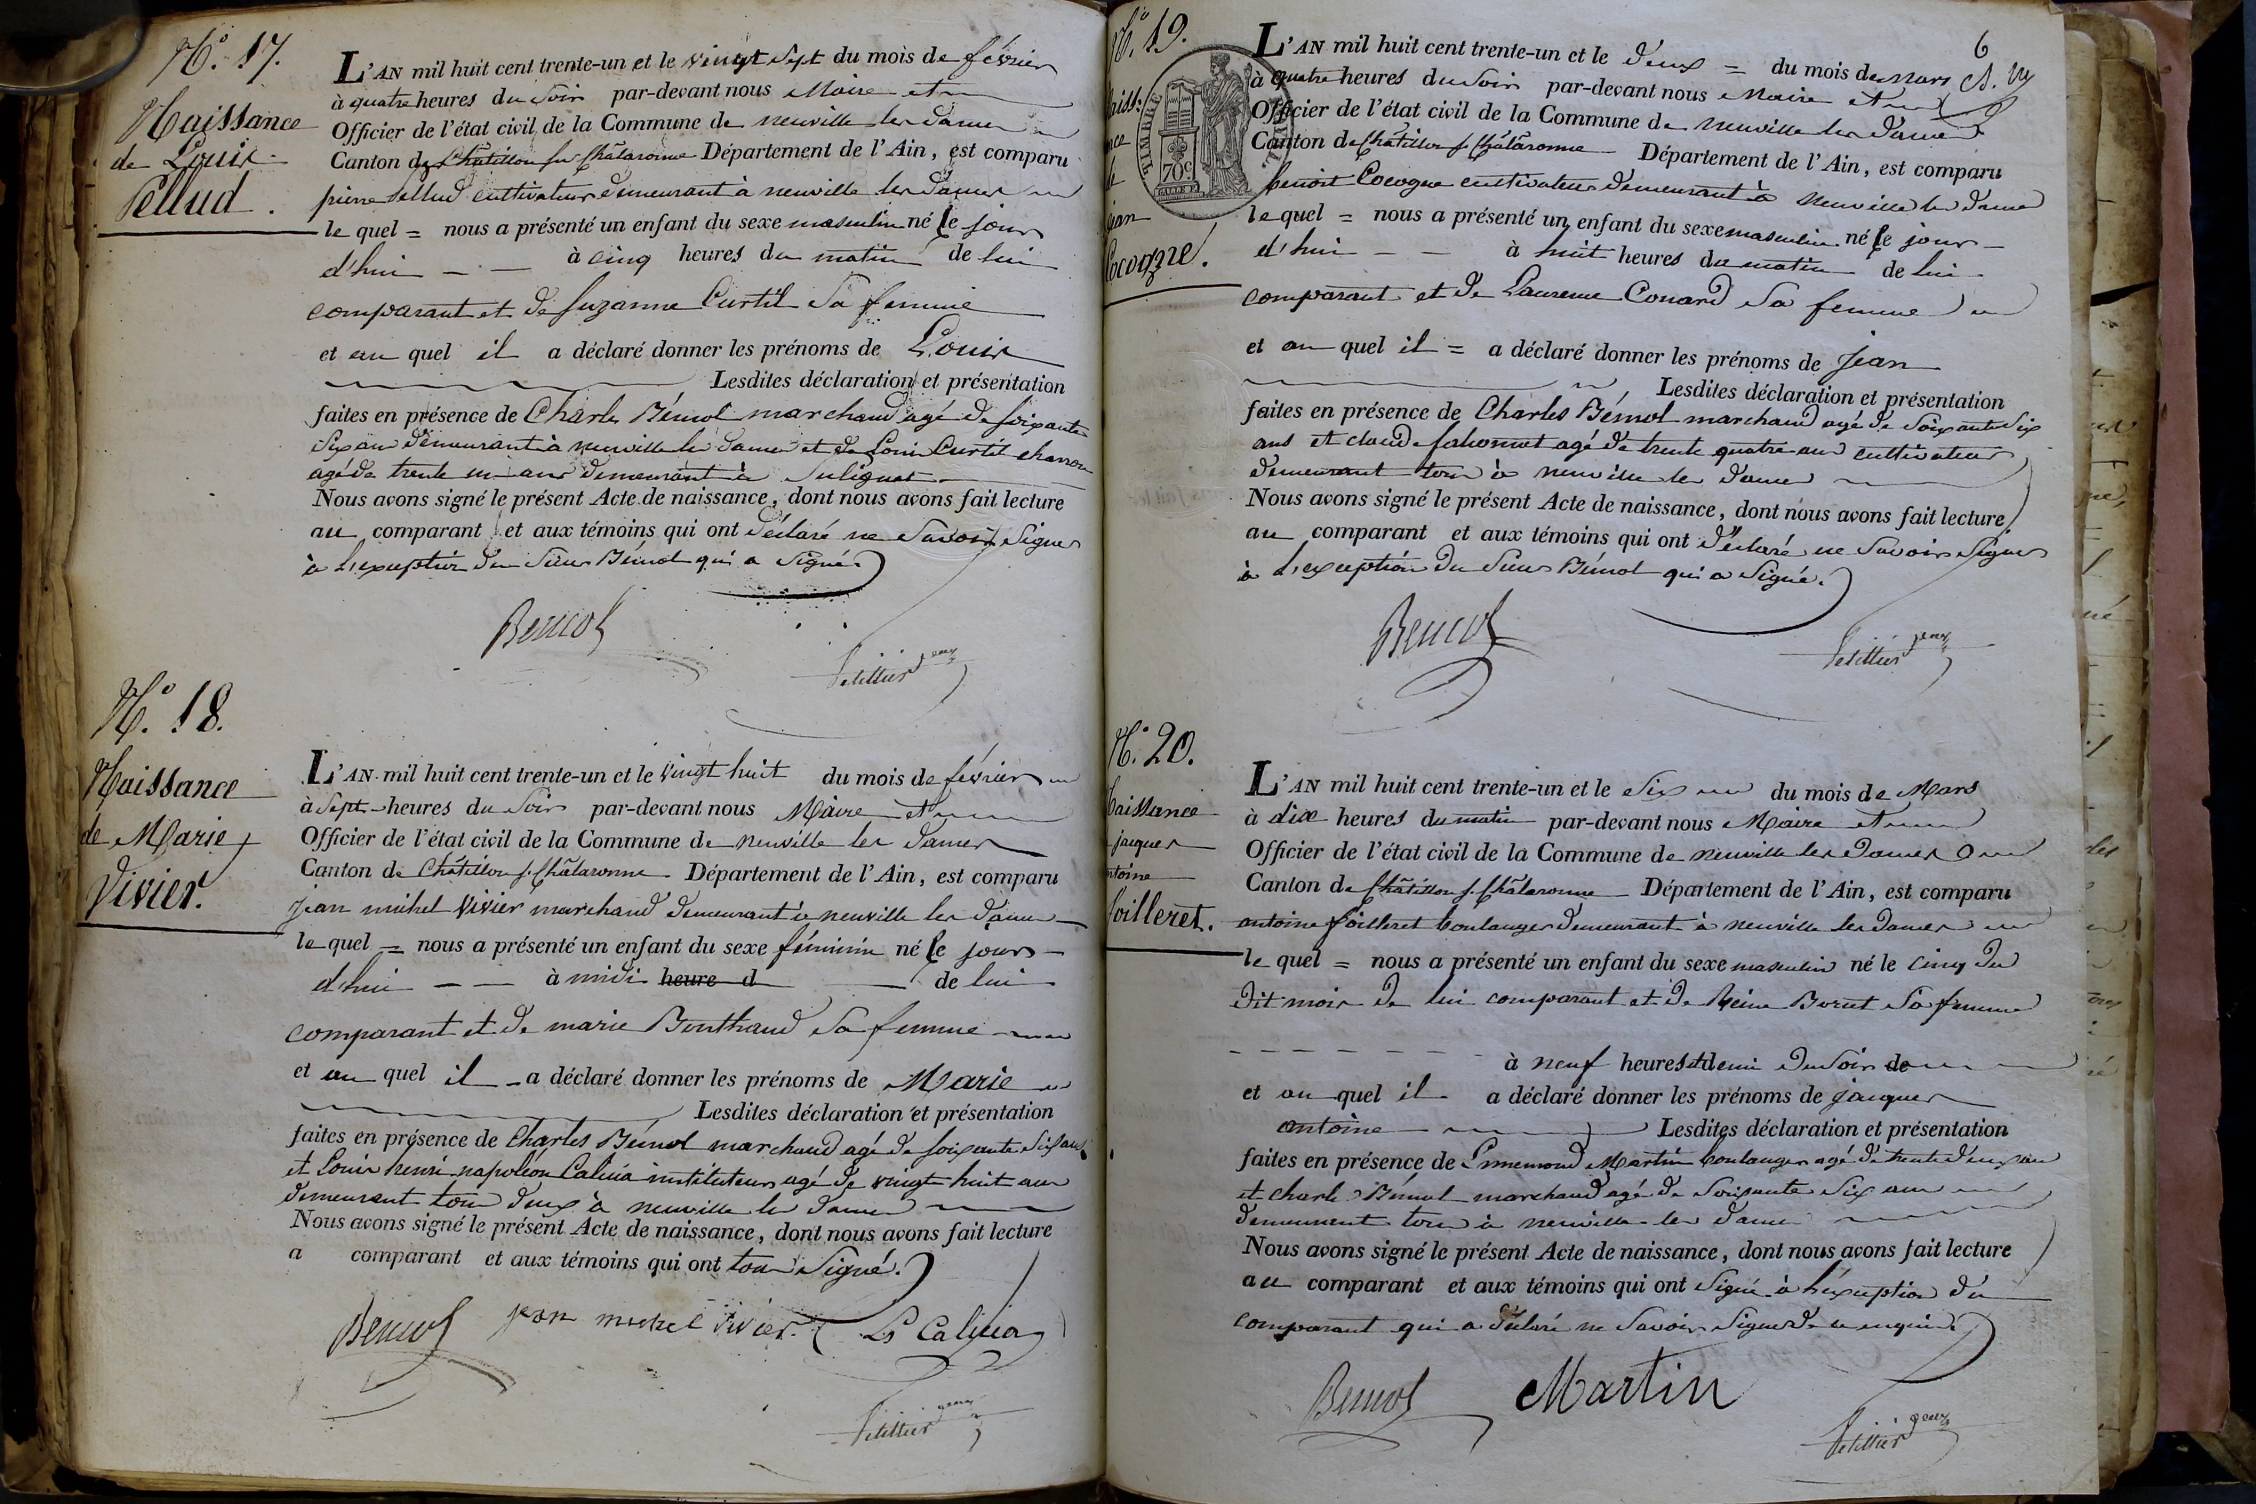 N.° 17.
Naissance
de Louis
Pellud.
L'AN mil huit cent trente-un et le vingt sept du mois de février
à quatre heures du soir par-devant nous Maire et
Officier de l'état civil de la Commune de neuville les dames
Canton de Châtillon sur Châlaronne Département de l'Ain, est comparu
pierre Pellud cultivateur demeurant à neuville les dames
le quel = nous a présenté un enfant du sexe masculin né le jour
d'hui — — à cinq heures du matin de lui
comparant et de Suzanne Curtil sa femme
et au quel il a déclaré donner les prénoms de Louis
Lesdites déclaration et présentation
faites en présence de Charles Bémol marchand agé de soixante
six ans demeurant à neuville les dames et de Louis Curtil charron
agé de trente un ans demeurant à Sulignat
Nous avons signé le présent Acte de naissance, dont nous avons fait lecture
au comparant et aux témoins qui ont déclaré ne savoir signer
à l'exception du sieur Bémol qui a signé.
Bemol
N.° 18.
Naissance
de Marie
Vivier.
L'AN mil huit cent trente-un et le vingt huit du mois de février
à sept heures du soir par-devant nous Maire et
Officier de l'état civil de la Commune de neuville les dames
Canton de Châtillon s. Châlaronne Département de l'Ain, est comparu
Jean michel Vivier marchand demeurant à neuville les dames
le quel = nous a présenté un enfant du sexe féminin né le jour
d'hui — — à midi heure d de lui
comparant et de marie Bonthaud sa femme
et au quel il a déclaré donner les prénoms de Marie
Lesdites déclaration et présentation
faites en présence de Charles Bémol marchand agé de soixante six ans
et Louis henri napoléon Calvia instituteur agé de vingt huit ans
demeurant tous deux à neuville les dames
Nous avons signé le présent Acte de naissance, dont nous avons fait lecture
a comparant et aux témoins qui ont tous signé.
Bemol jean michel vivier Ls Calvia
N.° 19.
Naiss:
nce
de
jean
Cocogne.
TIMBRE
70c
6
L'AN mil huit cent trente-un et le deux = du mois de mars
à quatre heures du soir par-devant nous Maire et
Officier de l'état civil de la Commune de neuville les dames
Canton de Châtillon s. Châlaronne Département de l'Ain, est comparu
benoit Cocogne cultivateur demeurant à neuville les dames
le quel = nous a présenté un enfant du sexe masculin né le jour
d'hui — — à huit heures du matin de lui
comparant et de Laurence Conard sa femme
et au quel il = a déclaré donner les prénoms de Jean
Lesdites déclaration et présentation
faites en présence de Charles Bémol marchand agé de soixante six
ans et claude agé de trente quatre ans cultivateur
demeurant tous à neuville les dames
Nous avons signé le présent Acte de naissance, dont nous avons fait lecture
au comparant et aux témoins qui ont déclaré ne savoir signer
à l'exception du sieur Bémol qui a signé.
Bemol
N.° 20.
Naissance
jacques
antoine
foilleret.
L'AN mil huit cent trente-un et le six du mois de Mars
à dix heures du matin par-devant nous Maire et
Officier de l'état civil de la Commune de neuville les dames
Canton de Châtillon s. Châlaronne Département de l'Ain, est comparu
antoine foilleret boulanger demeurant à neuville les dames
le quel = nous a présenté un enfant du sexe masculin né le cinq du
dit mois de lui comparant et de Reine Borut sa femme
à neuf heures et demi du soir de
et au quel il a déclaré donner les prénoms de jacques
antoine Lesdites déclaration et présentation
faites en présence de Martin boulanger agé de trente deux ans
et charles Bémol marchand agé de soixante six ans
demeurant tous à neuville les dames
Nous avons signé le présent Acte de naissance, dont nous avons fait lecture
au comparant et aux témoins qui ont signé à l'exception du
comparant qui a déclaré ne savoir signer de ce enquis.
Bemol Martin